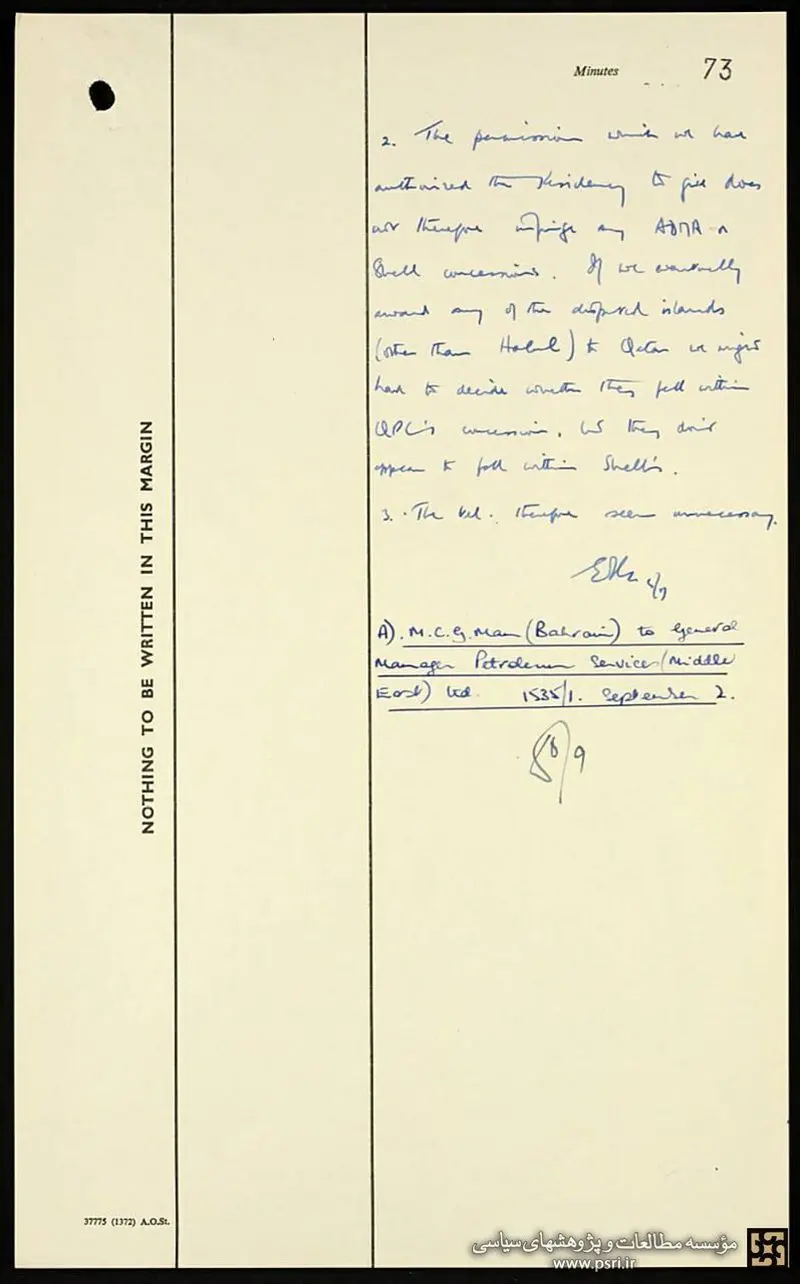 Minutes
73
2. The permission which we have
authorised the Residency to give does
not therefore infringe any ADMA or
Shell concessions. If we eventually
award any of the disputed islands
(other than Halul) to Qatar we might
have to decide whether they fell within
QPC's concession, but they don't
appear to fall within Shell's.
3. The tel. therefore seems unnecessary.
A). M.C.G. Man (Bahrain) to General
Manager Petroleum Services (Middle
East) Ltd. 1535/1. September 2.
9
NOTHING TO BE WRITTEN IN THIS MARGIN
37775 (1372) A.O.St.
مؤسسه مطالعات و پژوهشهای سیاسی
www.psri.ir